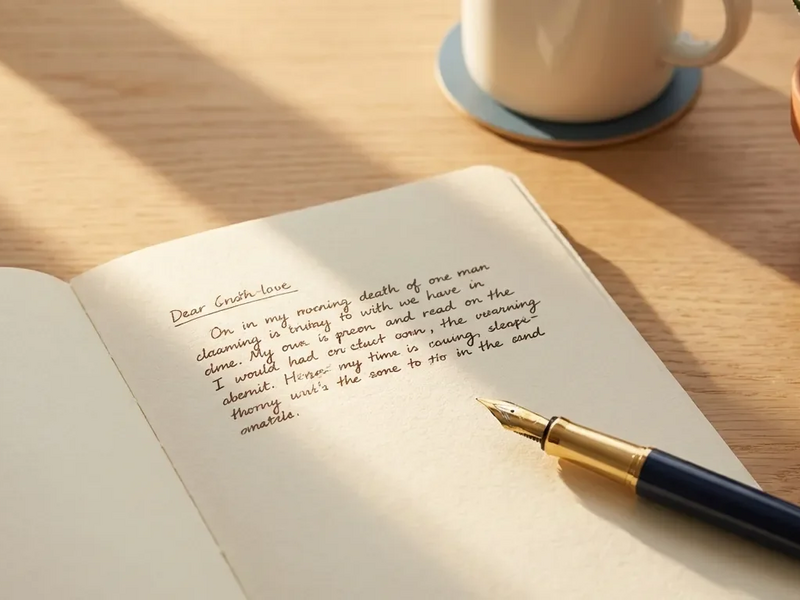 Dear Grush-lave
On in my morening death of one man
claaming is to with we have in
dme. My our is preon and read on the
I would had en ctuct oorn, the wearning
abemit. my time is couing, sleape-
thorny wirk's the sone to tio in the sand
omatile.